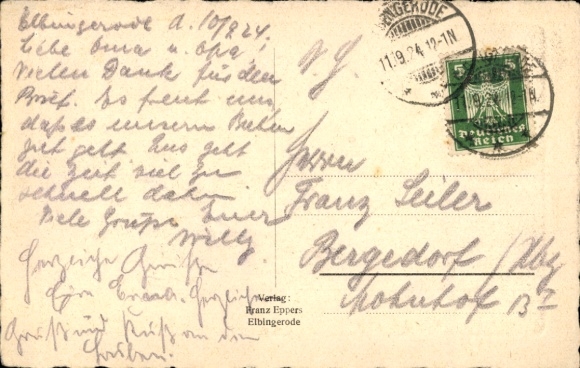 Elbingerode d. 10/9 24.
Liebe Oma u. Opa!
Vielen Dank für den
Brief. Es freut uns
dass es unseren Lieben
gut geht. Uns geht
die Zeit viel zu
schnell dahin.
Viele Grüße Euer
Willy
Herzliche Grüße
Herzliche
Gruß und Kuß an den
ELBINGERODE
11.9.24.12-1N
5 5
Deutsches
Reich
Herrn
Franz Seiler
Bergedorf / Hbg
Mohnhof
Verlag:
Franz Eppers
Elbingerode